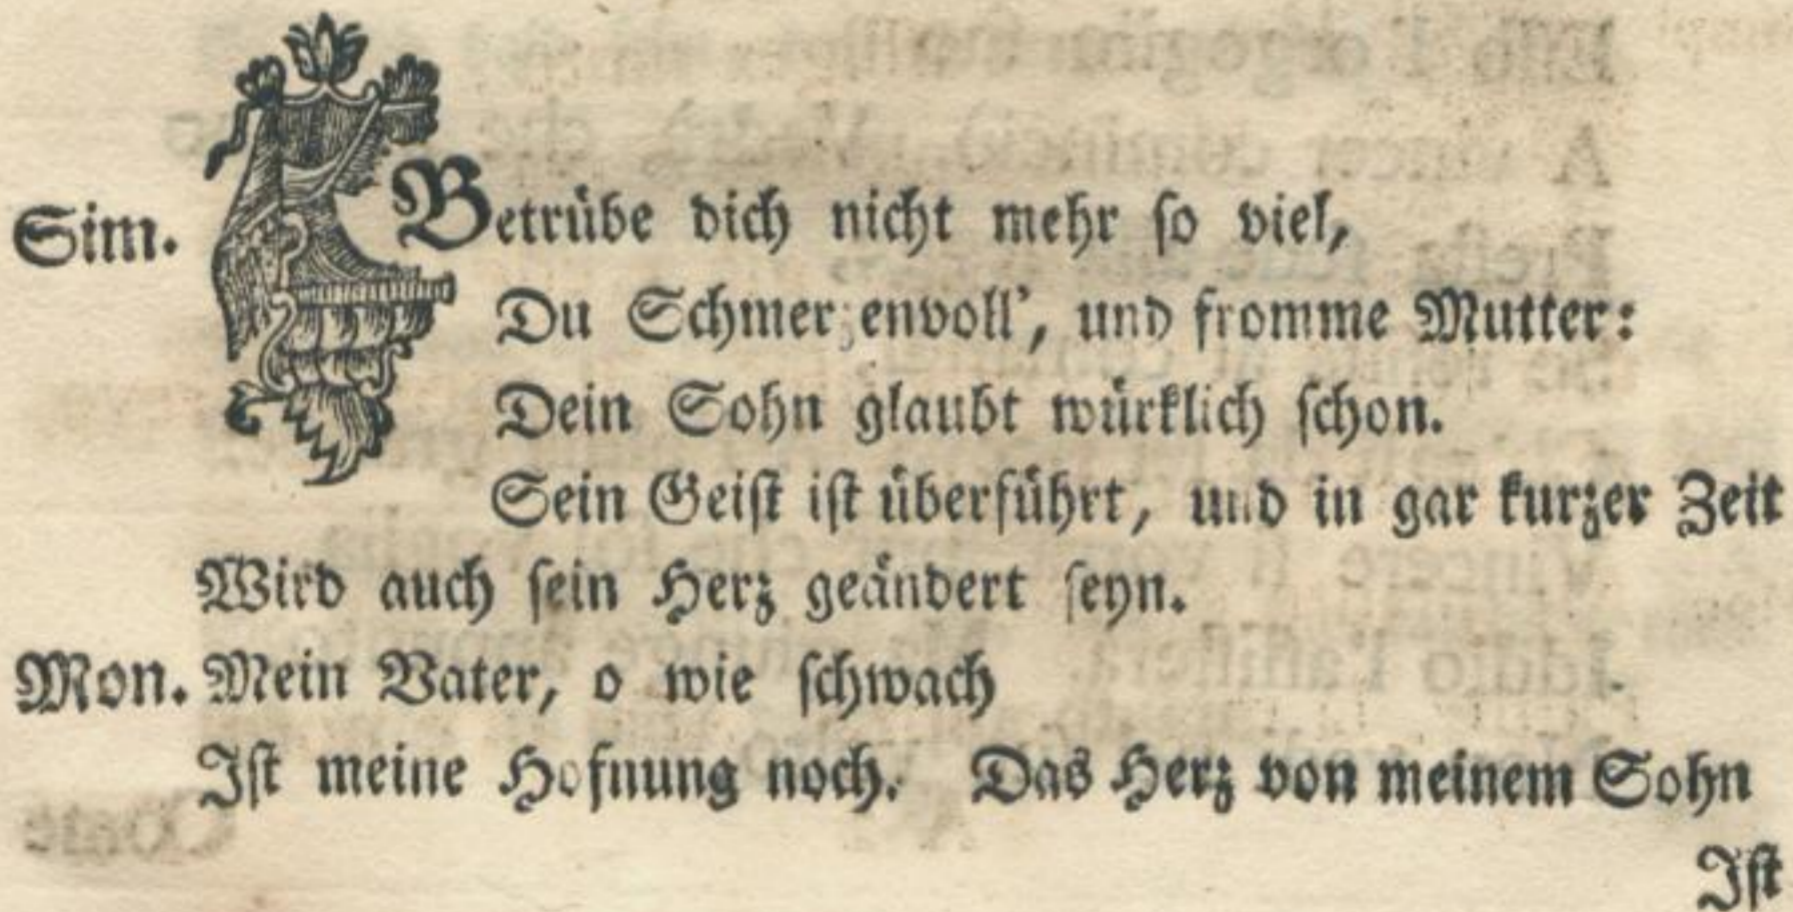 Sim. Betrübe dich nicht mehr so viel,
Du Schmerzenvoll', und fromme Mutter:
Dein Sohn glaubt würklich schon.
Sein Geist ist überführt, und in gar kurzer Zeit
Wird auch sein Herz geändert seyn.
Mon. Mein Vater, o wie schwach
Ist meine Hofnung noch. Das Herz von meinem Sohn
Ist